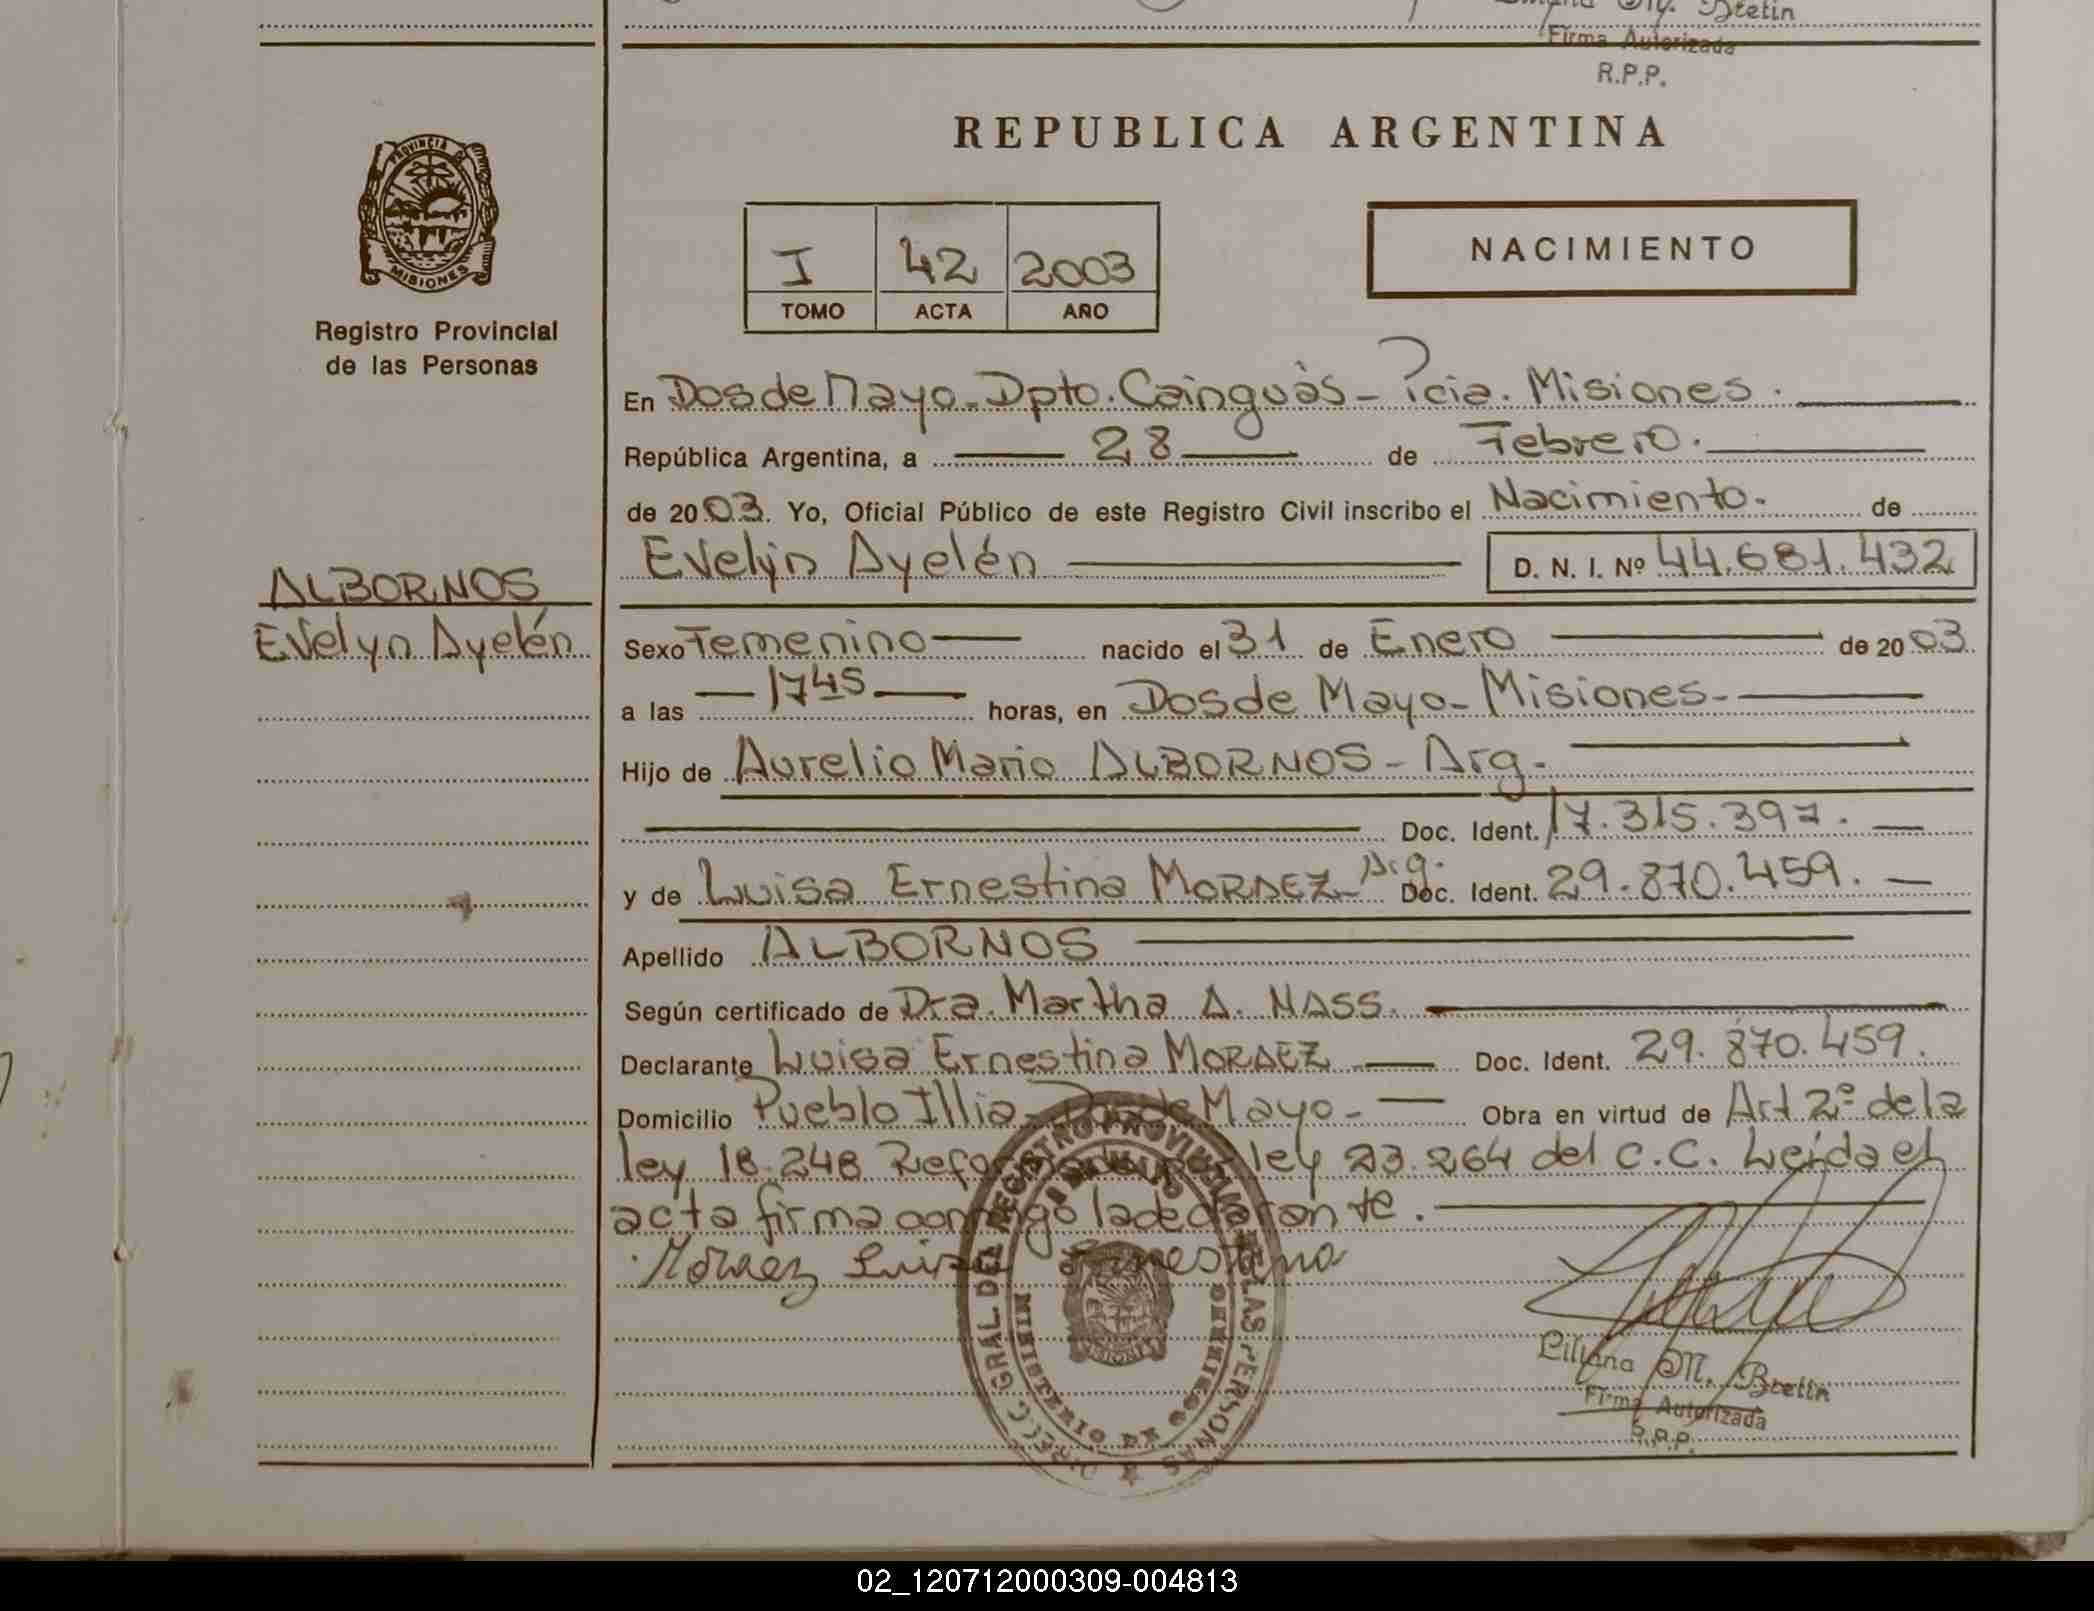 Bretin
Firma Autorizada
R.P.P.
PROVINCIA DE
MISIONES
Registro Provincial
de las Personas
REPUBLICA ARGENTINA
I 42 2003
TOMO ACTA AÑO
NACIMIENTO
En Dos de Mayo - Dpto. Cainguàs - Pcia. Misiones.
República Argentina, a 28 de Febrero.
de 2003. Yo, Oficial Público de este Registro Civil inscribo el Nacimiento. de
Evelyn Ayelén D. N. I. Nº 44.681.432
ALBORNOS
Evelyn Ayelén
Sexo Femenino nacido el 31 de Enero de 2003.
a las 1745 horas, en Dos de Mayo - Misiones -
Hijo de Aurelio Mario ALBORNOS - Arg.
Doc. Ident. 17.315.397.
y de Luisa Ernestina MORAEZ - Arg. Doc. Ident. 29.870.459.
Apellido ALBORNOS
Según certificado de Dra. Martha A. NASS.
Declarante Luisa Ernestina MORAEZ Doc. Ident. 29.870.459.
Domicilio Pueblo Illia - Dos de Mayo - Obra en virtud de Art 2º de la
ley 18.248 Reformada por ley 23.264 del C.C. Leída el
acta firma conmigo la declarante.
Moraez Luisa Ernestina
DIRECC GRAL DEL REGISTRO PROVINCIAL DE LAS PERSONAS
MINISTERIO DE GOBIERNO
MISIONES
Liliana M. Bretin
Firma Autorizada
R.P.P.
02_120712000309-004813